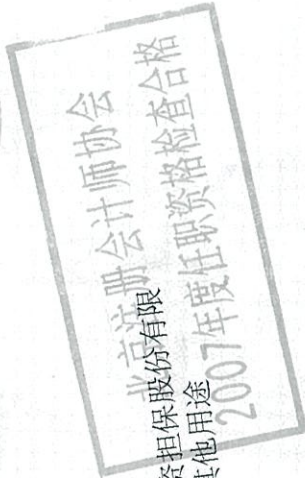 北京注册会计师协会
2007年度任职资格检查合格
资担保股份有限
其他用途